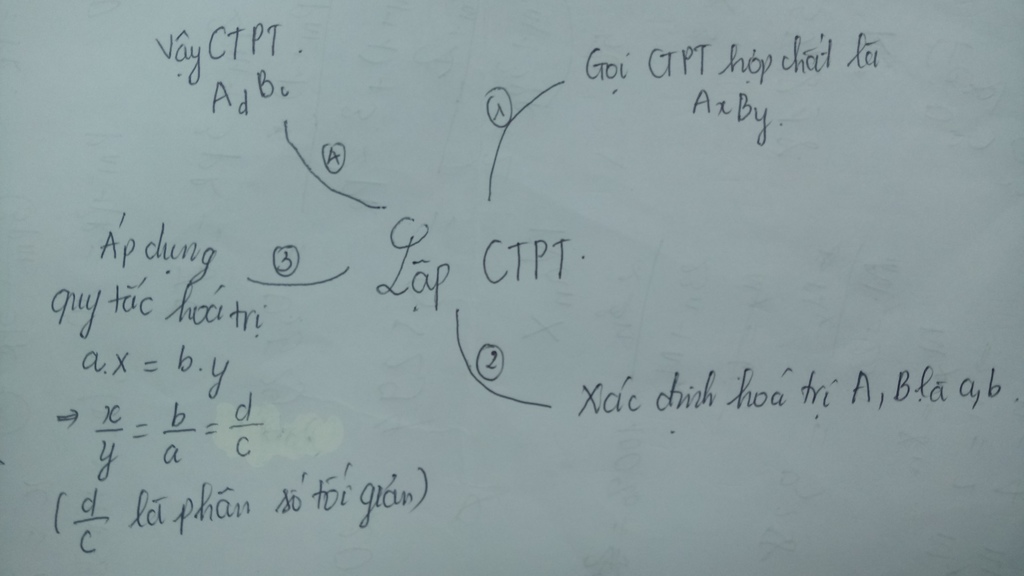 Lập CTPT.
①
Gọi CTPT hợp chất là
AxBy.
②
Xác định hoá trị A, B là a, b.
③
Áp dụng
quy tắc hoá trị
a.x = b.y
⇒ x/y = b/a = d/c
(d/c là phân số tối giản)
④
Vậy CTPT.
AdBc